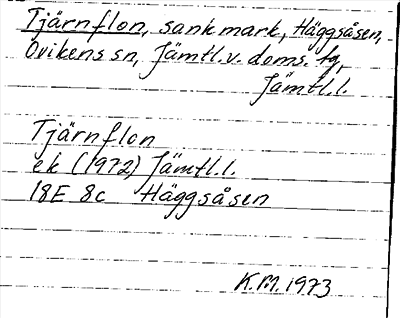 Tjärnflon, sankmark, Häggsåsen,
Ovikens sn, Jämtl.v. doms. fg,
Jämtl.l.
Tjärnflon
ek (1972) Jämtl.l.
18E 8c Häggsåsen
K.M. 1973